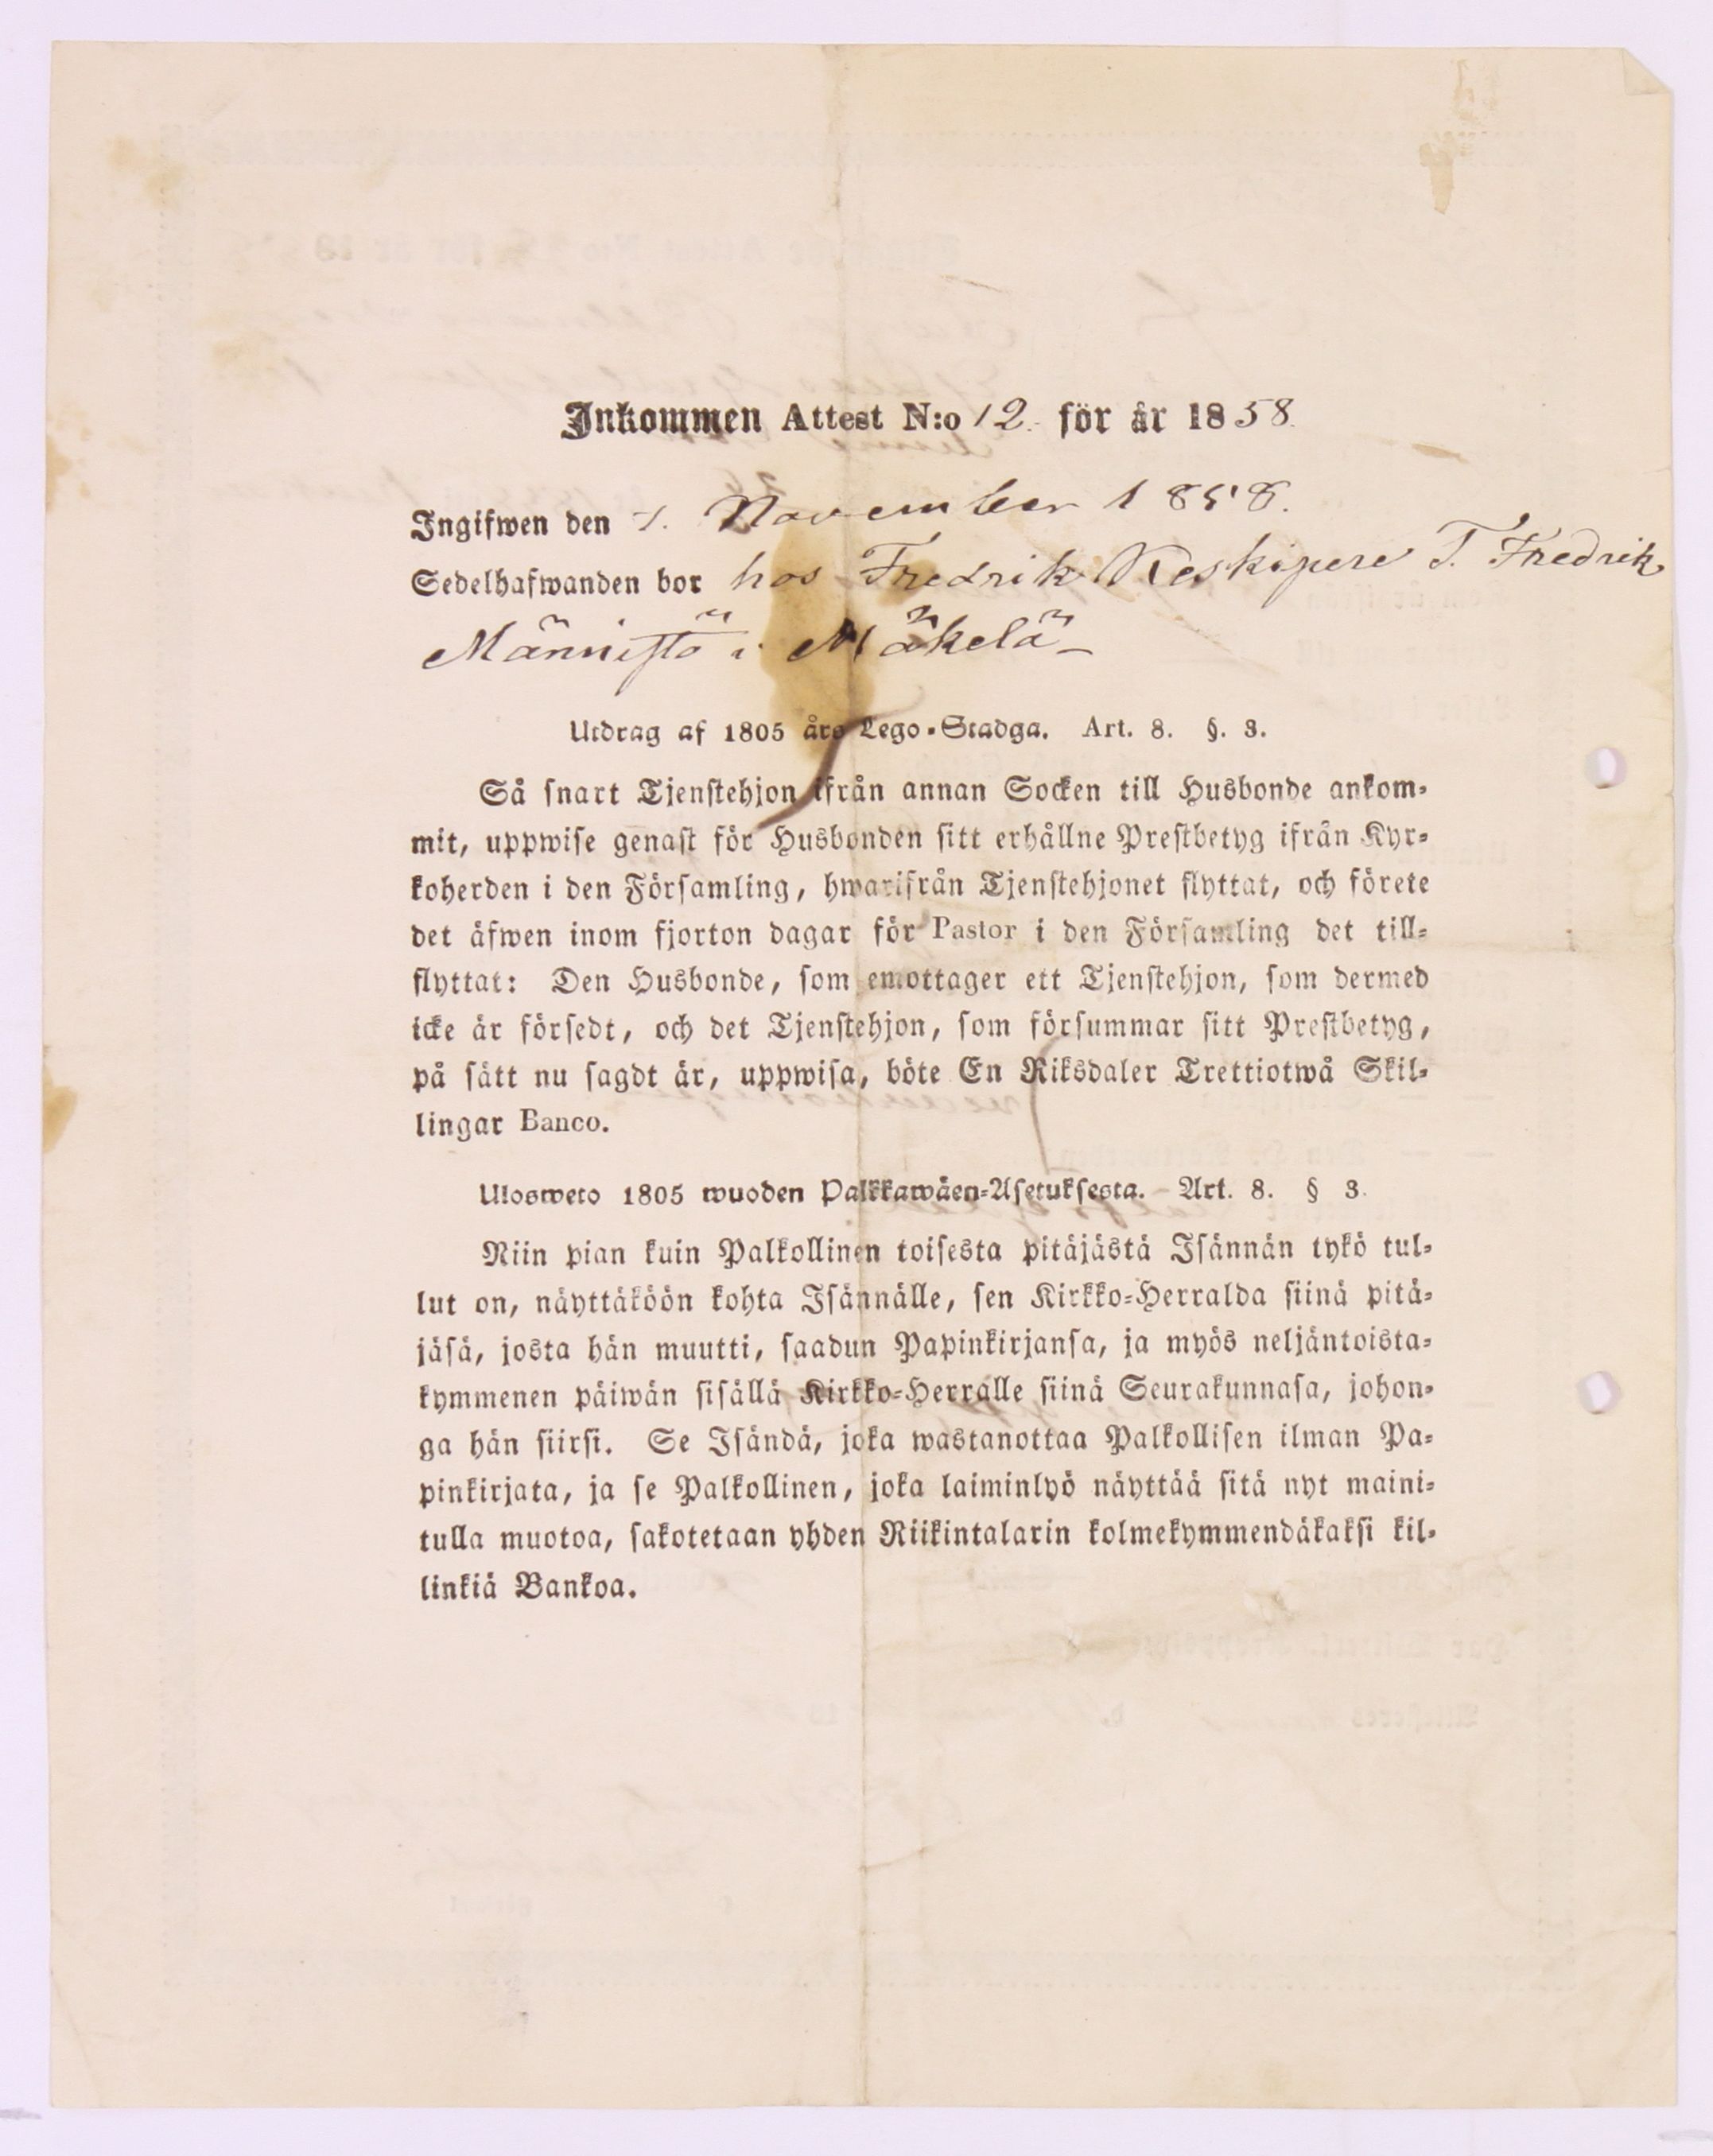 Inkommen Attest N:o 12. för år 1858.
Ingifwen den 1. November 1858.
Sedelhafwanden bor hos Fredrik Keskipere T. Fredrik
Männistö i Mäkelä
Utdrag af 1805 års Lego-Stadga. Art. 8. §. 3.
Så snart Tjenstehjon ifrån annan Socken till Husbonde ankom-
mit, uppwise genast för Husbonden sitt erhållne Prestbetyg ifrån Kyr-
koherden i den Församling, hwarifrån Tjenstehjonet flyttat, och förete
det äfwen inom fjorton dagar för Pastor i den Församling det till-
flyttat: Den Husbonde, som emottager ett Tjenstehjon, som dermed
icke är försedt, och det Tjenstehjon, som försummar sitt Prestbetyg,
på sätt nu sagdt är, uppwisa, böte En Riksdaler Trettiotwå Skil-
lingar Banco.
Ulosweto 1805 wuoden Palkkawäen-Asetuksesta. Art. 8. § 3.
Niin pian kuin Palkollinen toisesta pitäjästä Isännän tykö tul-
lut on, näyttäköön kohta Isännälle, sen Kirkko-Herralda siinä pitä-
jäsä, josta hän muutti, saadun Papinkirjansa, ja myös neljäntoista-
kymmenen päiwän sisällä Kirkko-Herralle siinä Seurakunnasa, johon-
ga hän siirsi. Se Isändä, joka wastanottaa Palkollisen ilman Pa-
pinkirjata, ja se Palkollinen, joka laiminlyö näyttää sitä nyt maini-
tulla muotoa, sakotetaan yhden Riikintalarin kolmekymmendäkaksi kil-
linkiä Bankoa.